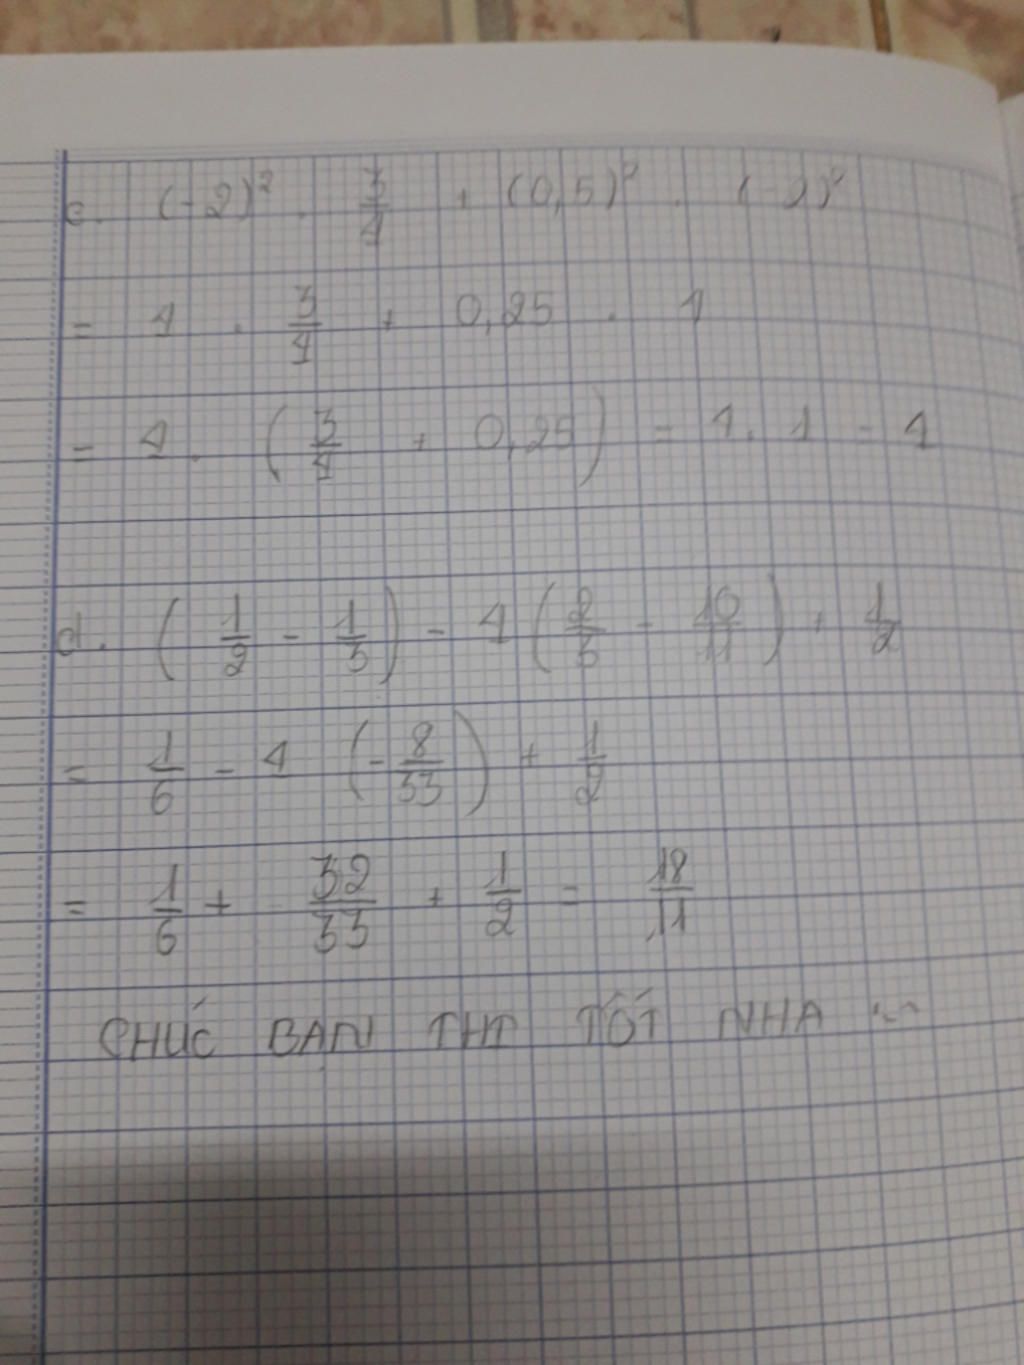 c. (-2)² . 3/4 + (0,5)² . (-2)²
= 4 . 3/4 + 0,25 . 4
= 4 . (3/4 + 0,25) = 4 . 1 = 4
d. (1/2 - 1/3) - 4 (2/3 - 10/11) + 1/2
= 1/6 - 4 (-8/33) + 1/2
= 1/6 + 32/33 + 1/2 = 18/11
CHÚC BẠN THT TỐT NHA ^^